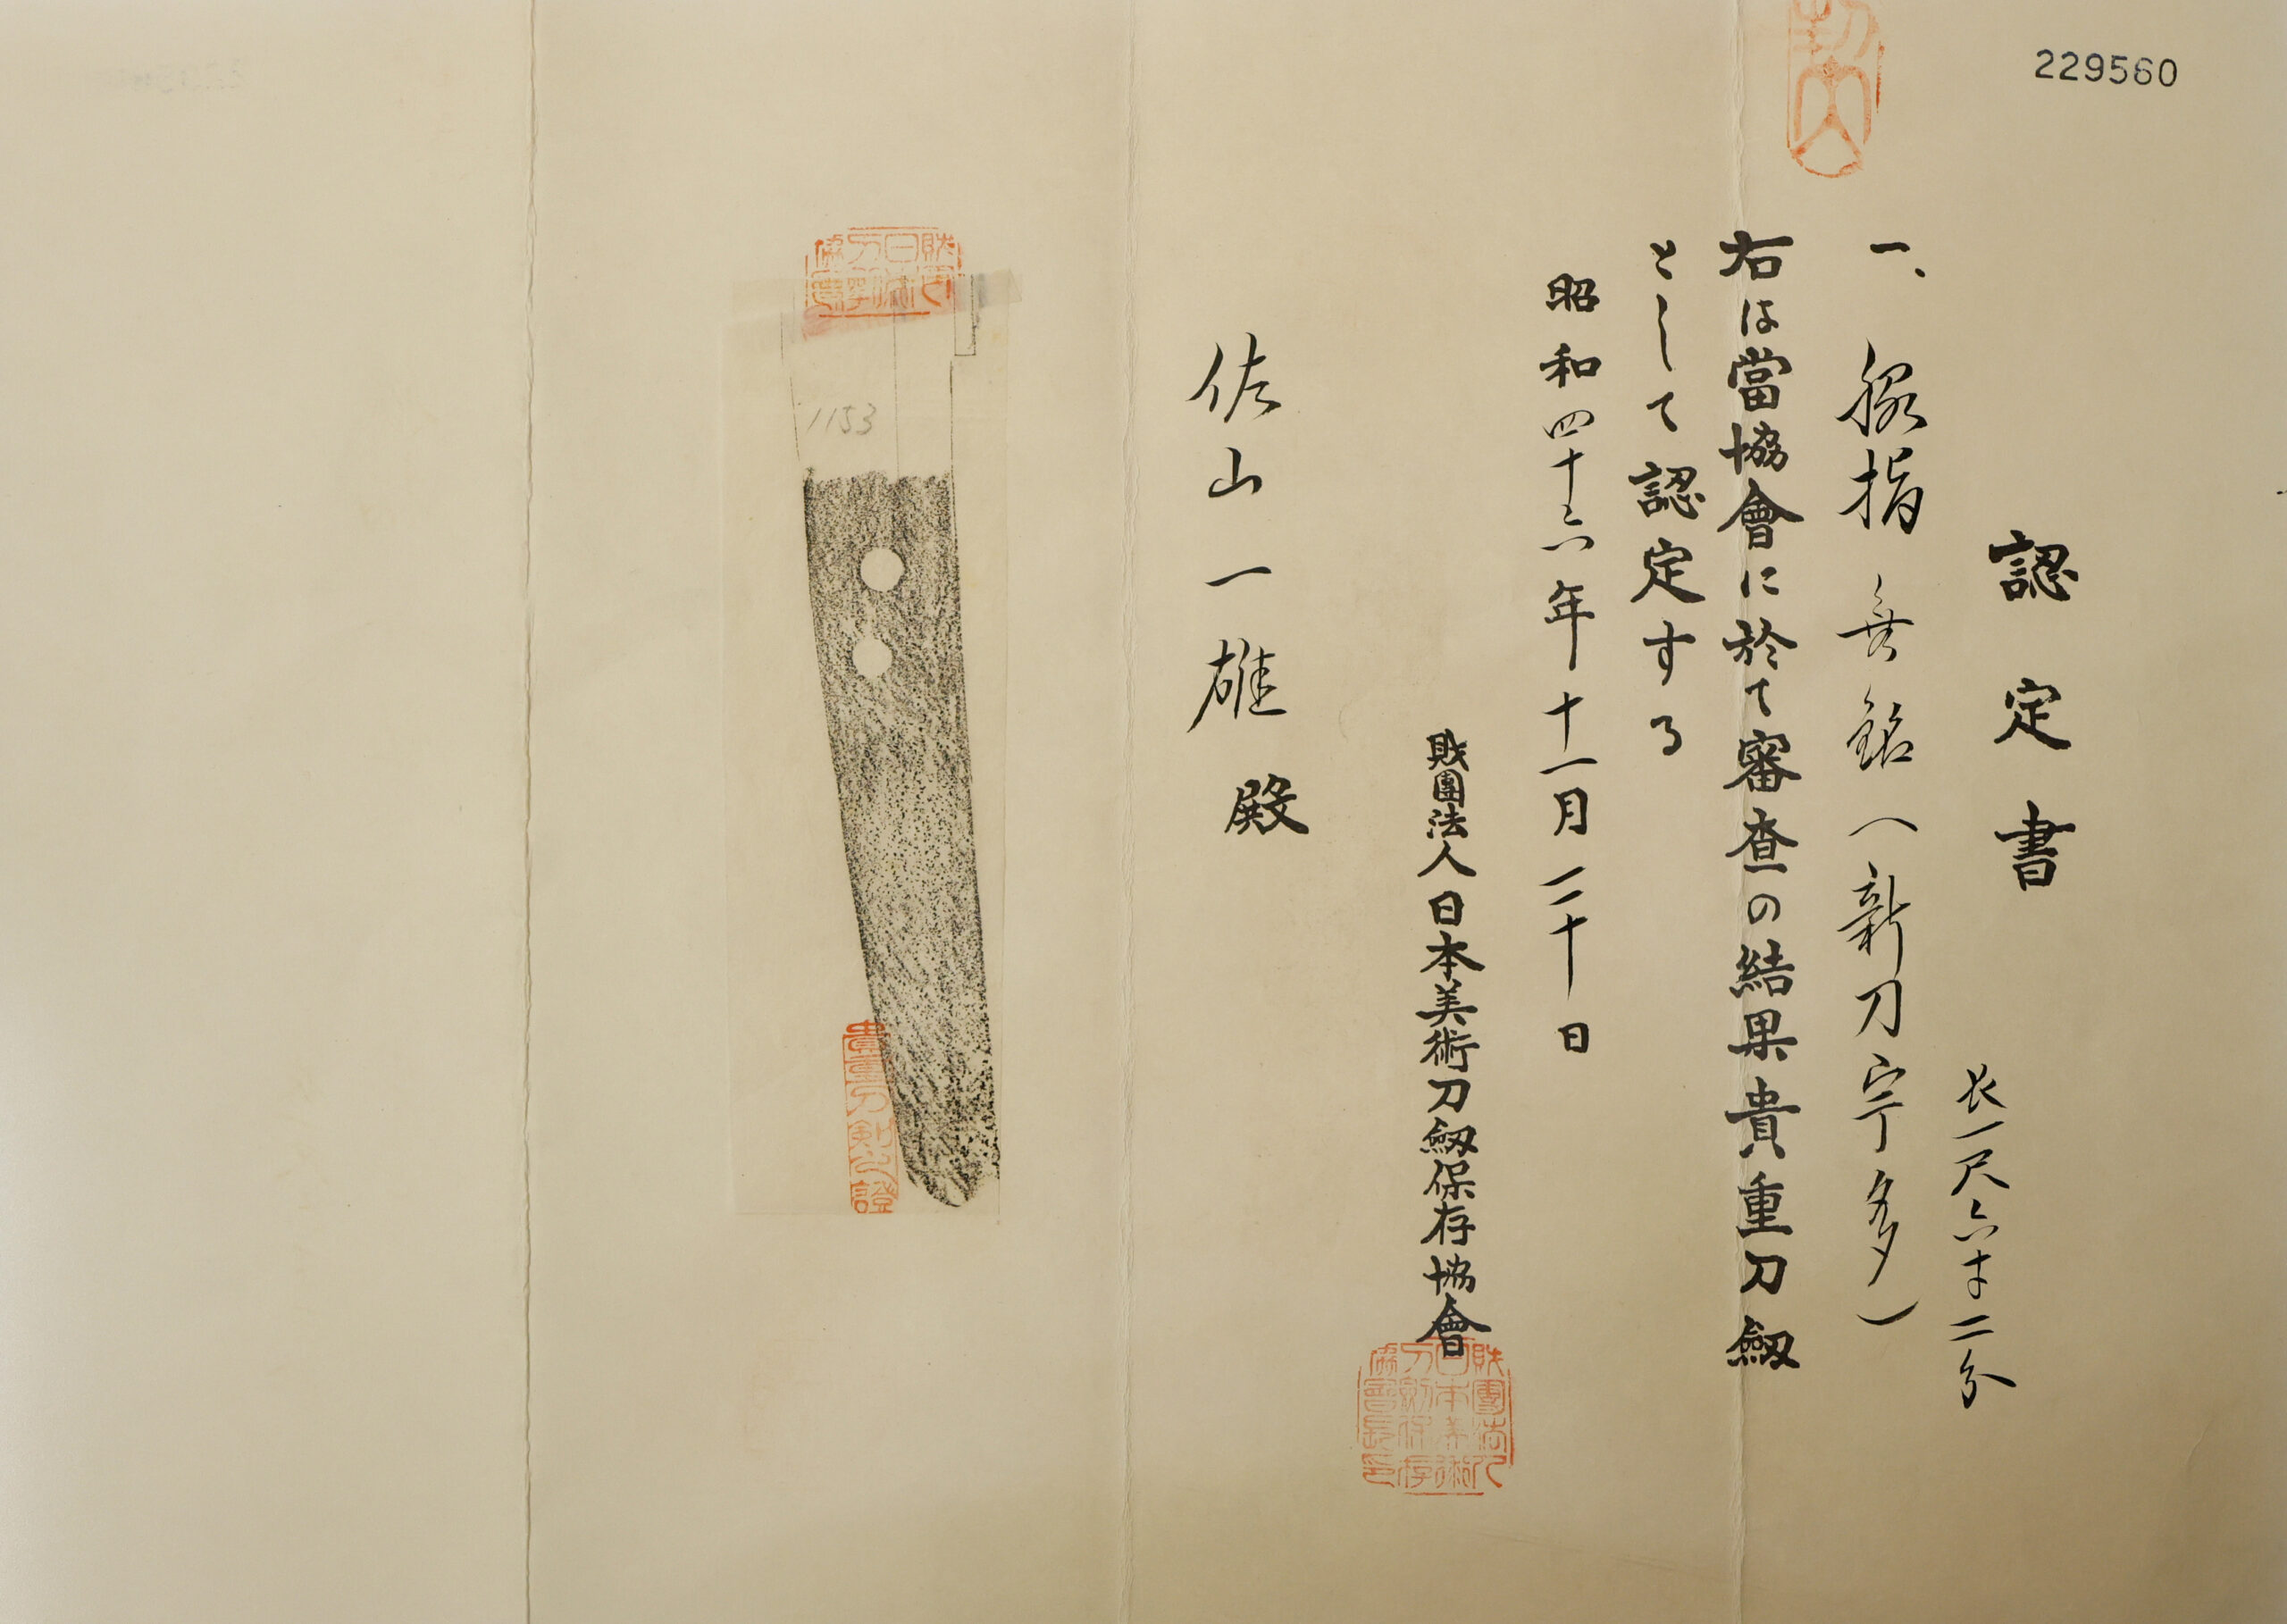 229560
認定書
長一尺六寸二分
一、脇指 無銘(新刀宇多)
右は當協會に於て審査の結果貴重刀劔
として認定する
昭和四十六年十一月二十日
財團法人日本美術刀劔保存協會
財團法人日本美術刀劔保存協會長印
佐山一雄殿
1153
貴重刀剣之證